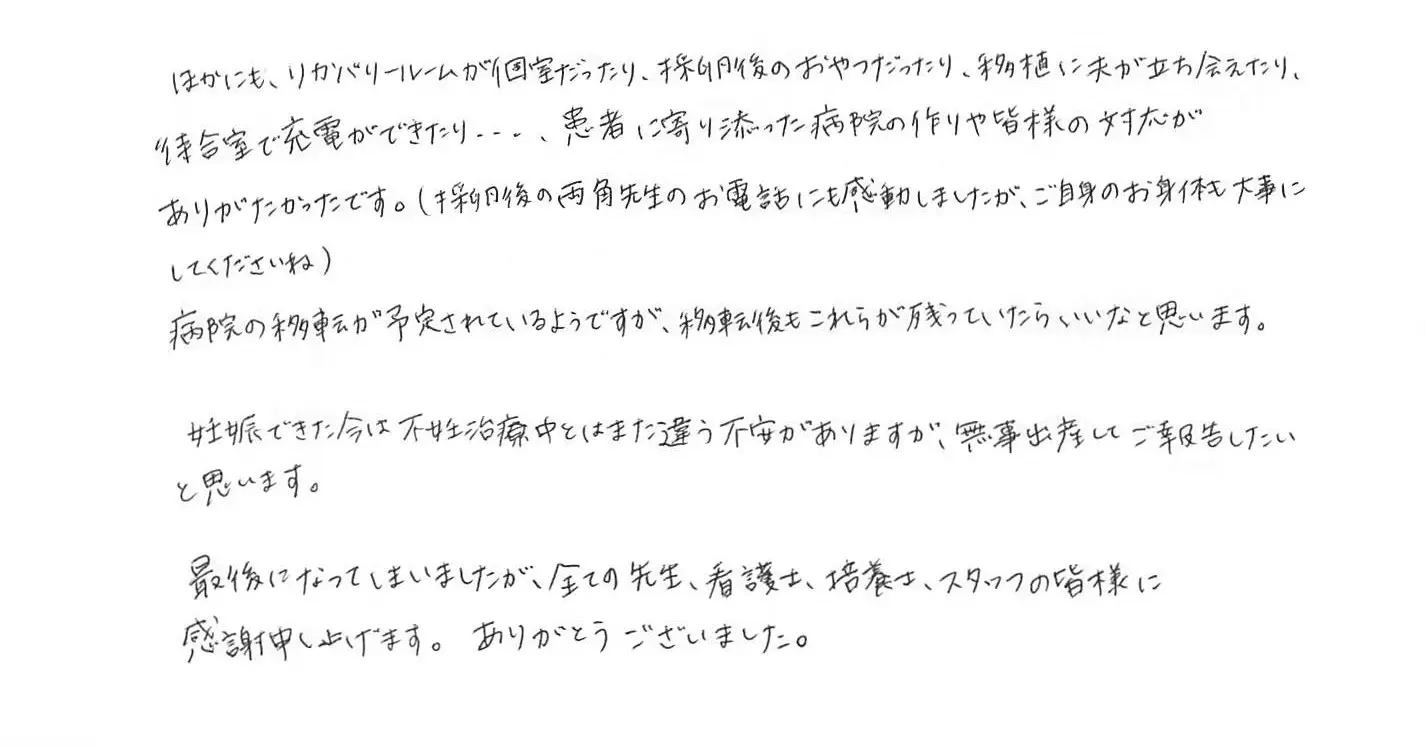 ほかにも、リカバリールームが個室だったり、採卵後のおやつだったり、移植に夫が立ち会えたり、
待合室で充電ができたり...、患者に寄り添った病院の作りや皆様の対応が
ありがたかったです。(採卵後の両角先生のお電話にも感動しましたが、ご自身のお身体も大事に
してくださいね)
病院の移転が予定されているようですが、移転後もこれらが残っていたらいいなと思います。
妊娠できた今は不妊治療中とはまた違う不安がありますが、無事出産してご報告したい
と思います。
最後になってしまいましたが、全ての先生、看護士、培養士、スタッフの皆様に
感謝申し上げます。ありがとうございました。